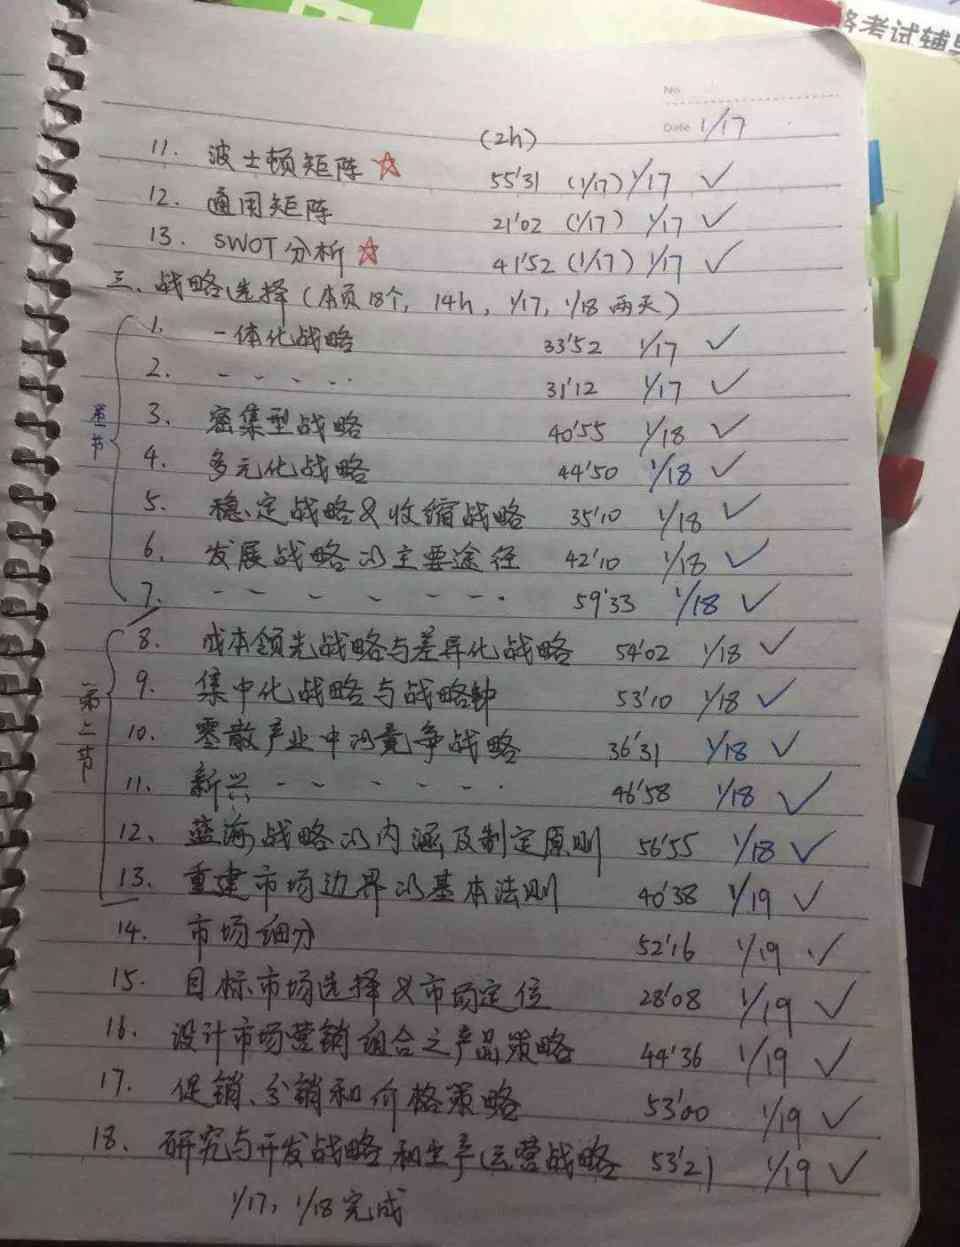 考试辅导
No.
Date 1/17
(2h)
11. 波士顿矩阵☆ 55'31 (1/17) 1/17 ✓
12. 通用矩阵 21'02 (1/17) 1/17 ✓
13. SWOT分析☆ 41'52 (1/17) 1/17 ✓
三、战略选择(本页18个, 14h, 1/17, 1/18 两天)
1. 一体化战略 33'52 1/17 ✓
2. - - - - - 31'12 1/17 ✓
3. 密集型战略 40'55 1/18 ✓
4. 多元化战略 44'50 1/18 ✓
5. 稳定战略&收缩战略 35'10 1/18 ✓
6. 发展战略的主要途径 42'10 1/18 ✓
7. - - - - - - - 59'33 1/18 ✓
8. 成本领先战略与差异化战略 54'02 1/18 ✓
9. 集中化战略与战略钟 53'10 1/18 ✓
第二节
10. 零散产业中的竞争战略 36'31 1/18 ✓
11. 新兴 - - - - - - 46'58 1/18 ✓
12. 蓝海战略的内涵及制定原则 56'55 1/18 ✓
13. 重建市场边界的基本法则 40'38 1/19 ✓
14. 市场细分 52'16 1/19 ✓
15. 目标市场选择&市场定位 28'08 1/19 ✓
16. 设计市场营销组合之产品策略 44'36 1/19 ✓
17. 促销、分销和价格策略 53'00 1/19 ✓
18. 研究与开发战略和生产运营战略 53'21 1/19 ✓
1/17, 1/18 完成